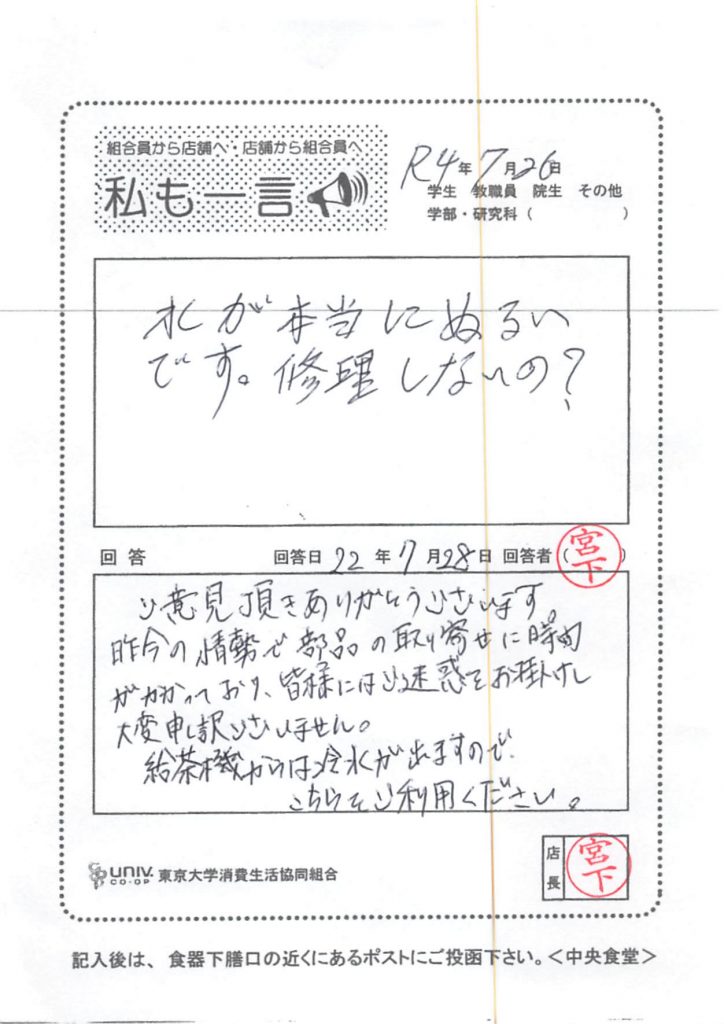 組合員から店舗へ・店舗から組合員へ
私も一言
R4年7月26日
学生 教職員 院生 その他
学部・研究科( )
水が本当にぬるい
です。修理しないの?
回答 回答日 22年7月28日 回答者(宮下)
ご意見頂きありがとうございます。
昨今の情勢で部品の取り寄せに時間
がかかっており、皆様にはご迷惑をお掛けし
大変申し訳ございません。
給茶機からは冷水が出ますので、
こちらをご利用ください。
UNIV.
CO-OP
東京大学消費生活協同組合
店長 宮下
記入後は、食器下膳口の近くにあるポストにご投函下さい。<中央食堂>